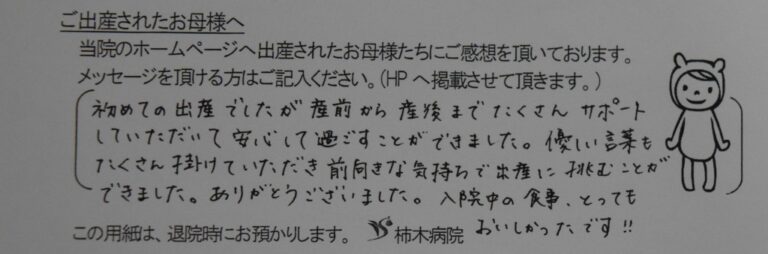 ご出産されたお母様へ
当院のホームページへ出産されたお母様たちにご感想を頂いております。
メッセージを頂ける方はご記入ください。(HPへ掲載させて頂きます。)
初めての出産でしたが産前から産後までたくさんサポート
していただいて安心して過ごすことができました。優しい言葉も
たくさん掛けていただき前向きな気持ちで出産に挑むことが
できました。ありがとうございました。入院中の食事、とっても
おいしかったです!!
この用紙は、退院時にお預かりします。 柿木病院